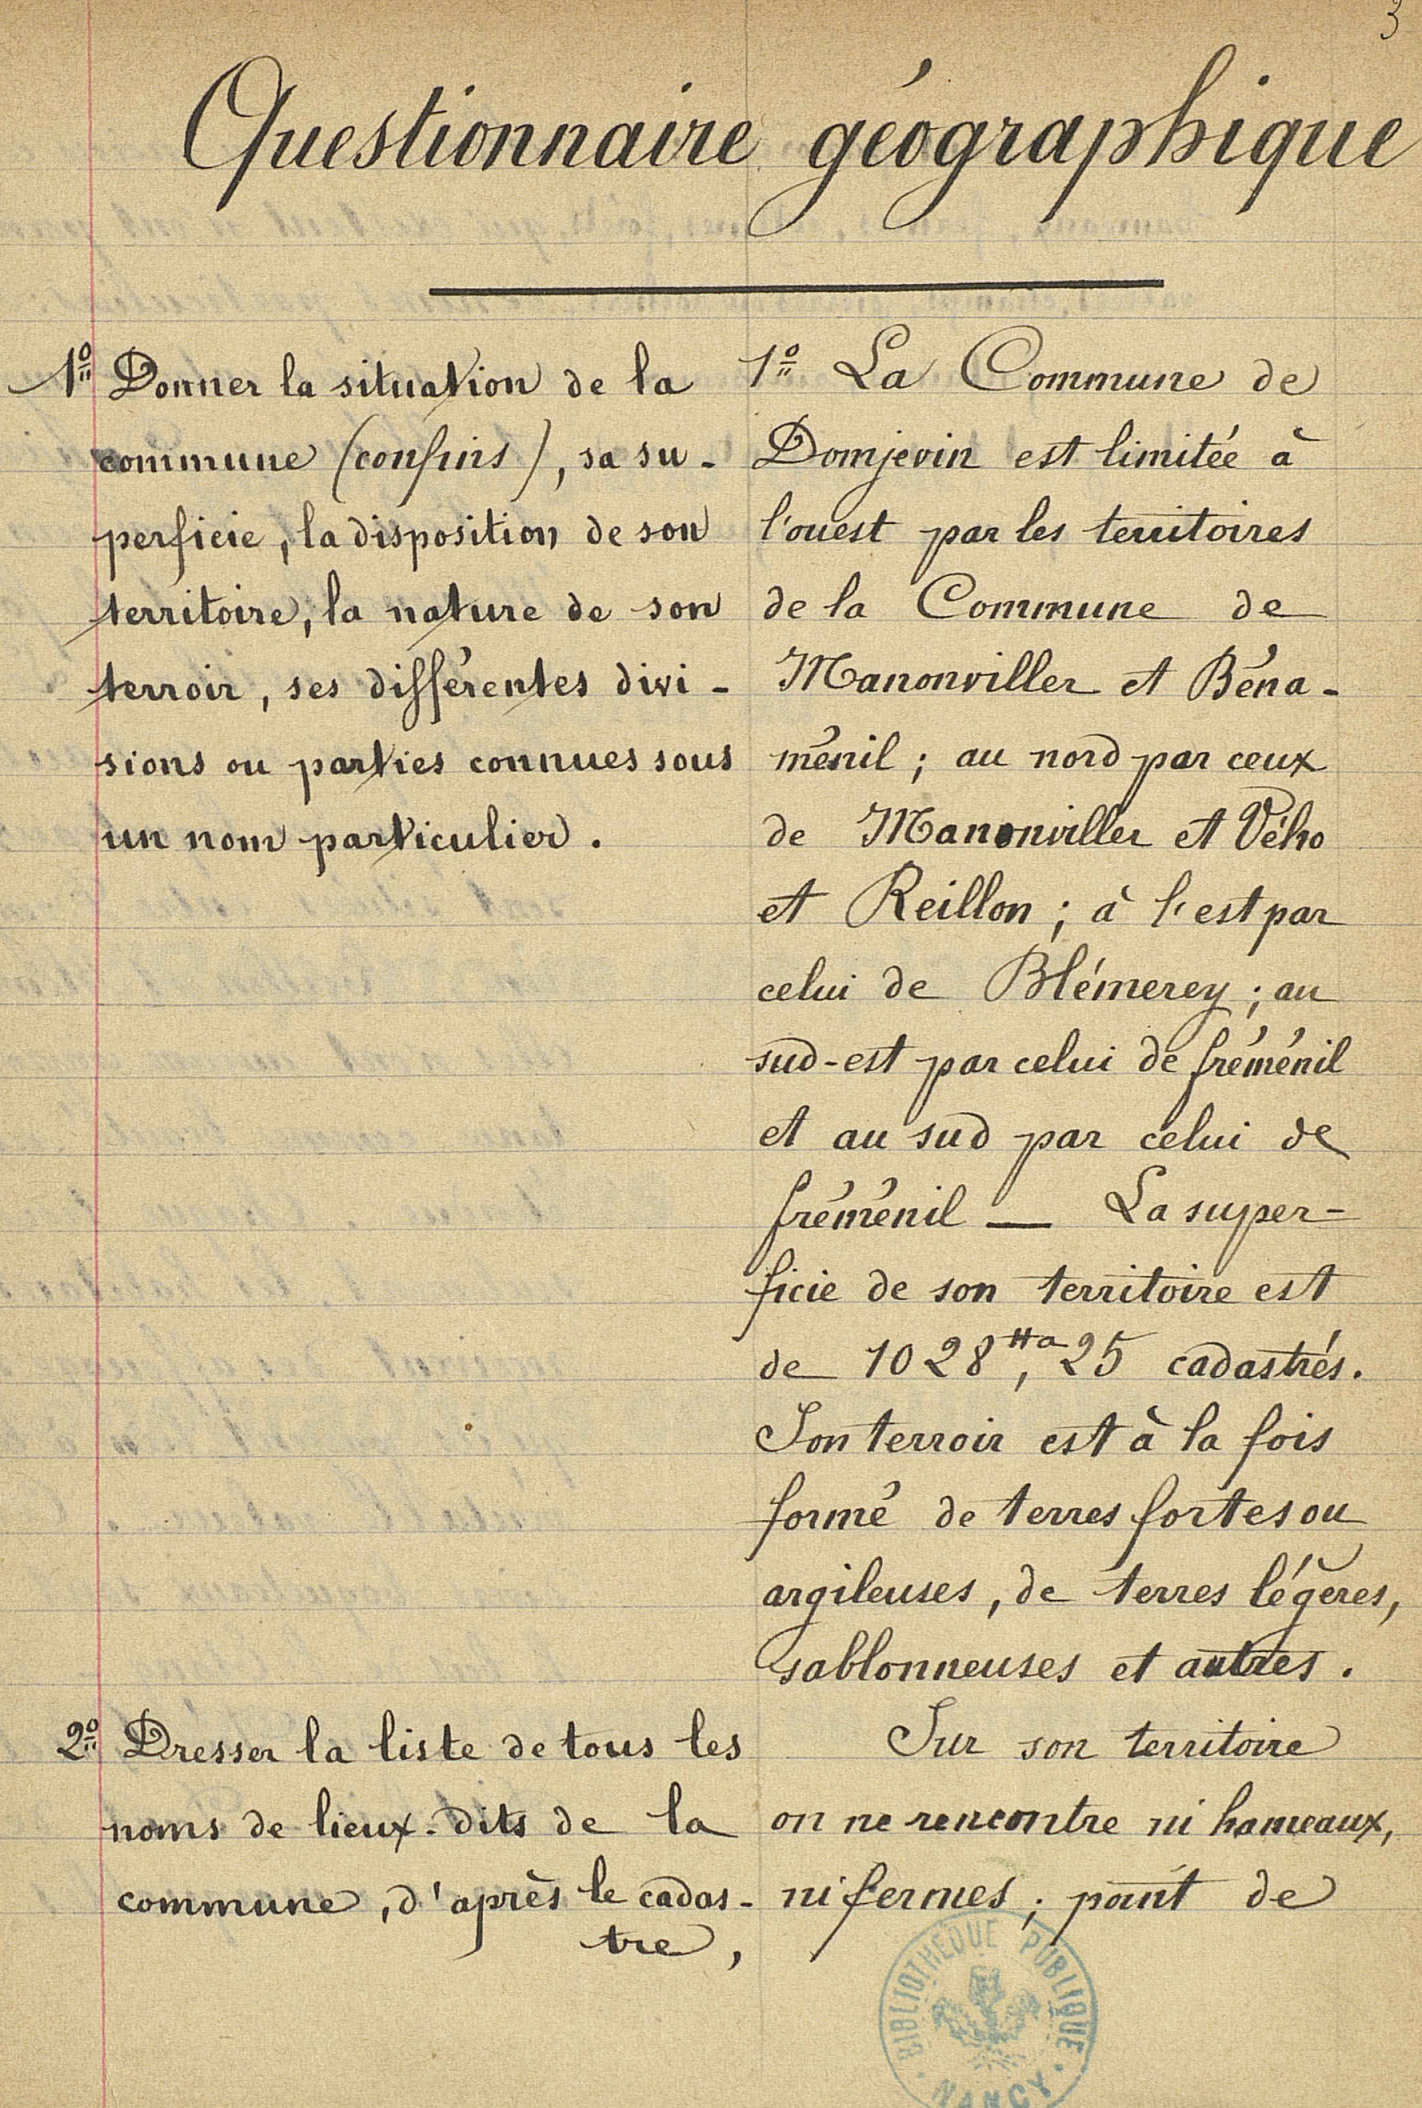 3
Questionnaire géographique
1° Donner la situation de la
commune (confins), sa su-
perficie, la disposition de son
territoire, la nature de son
terroir, ses différentes divi-
sions ou parties connues sous
un nom particulier.
1° La Commune de
Domjevin est limitée à
l'ouest par les territoires
de la Commune de
Manonviller et Béna-
ménil ; au nord par ceux
de Manonviller et Vého
et Reillon ; à l'est par
celui de Blémerey ; au
sud-est par celui de fréménil
et au sud par celui de
fréménil — La super-
ficie de son territoire est
de 1028,Ha25 cadastrés.
Son terroir est à la fois
formé de terres fortes ou
argileuses, de terres légères,
sablonneuses et autres.
2° Dresser la liste de tous les
noms de lieux-dits de la
commune, d'après le cadas-
tre,
Sur son territoire
on ne rencontre ni hameaux,
ni fermes ; point de
BIBLIOTHÈQUE PUBLIQUE
NANCY